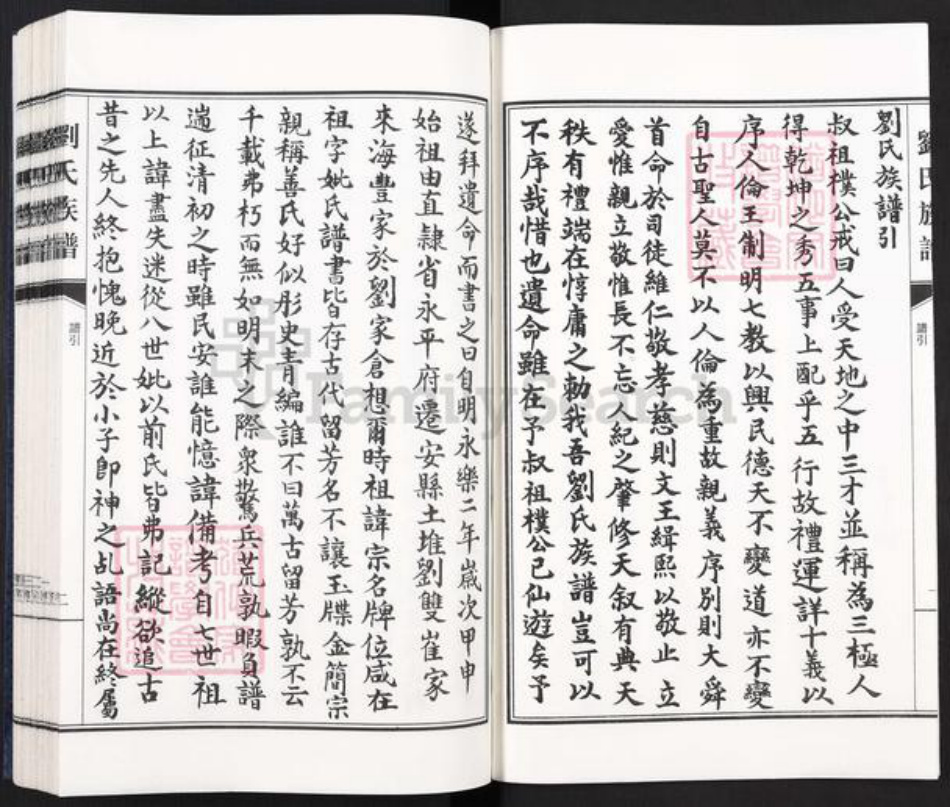 劉氏族譜
譜引
劉氏族譜引
叔祖樸公戒曰人受天地之中三才並稱為三極人
得乾坤之秀五事上配乎五行故禮運詳十義以
序人倫王制明七教以興民德天不變道亦不變
自古聖人莫不以人倫為重故親義序別則大舜
首命於司徒維仁敬孝慈則文王緝熙以敬止立
愛惟親立敬惟長不忘人紀之肇修天叙有典天
秩有禮端在惇庸之勅我吾劉氏族譜豈可以
不序哉惜也遺命雖在予叔祖樸公已仙遊矣予
遂拜遺命而書之曰自明永樂二年歲次甲申
始祖由直隸省永平府遷安縣土堆劉雙崔家
來海豐家於劉家倉想爾時祖諱宗名牌位咸在
祖字妣氏譜書皆存古代留芳名不讓玉牒金簡宗
親稱善氏好似彤史青編誰不曰萬古留芳孰不云
千載弗朽而無如明末之際衆驚兵荒孰暇負譜
遄征清初之時雖民安誰能憶諱備考自七世祖
以上諱盡失迷從八世妣以前氏皆弗記縱欲追古
昔之先人終抱愧晚近於小子即神之乩語尚在終屬
劉氏族譜
譜引
FamilySearch